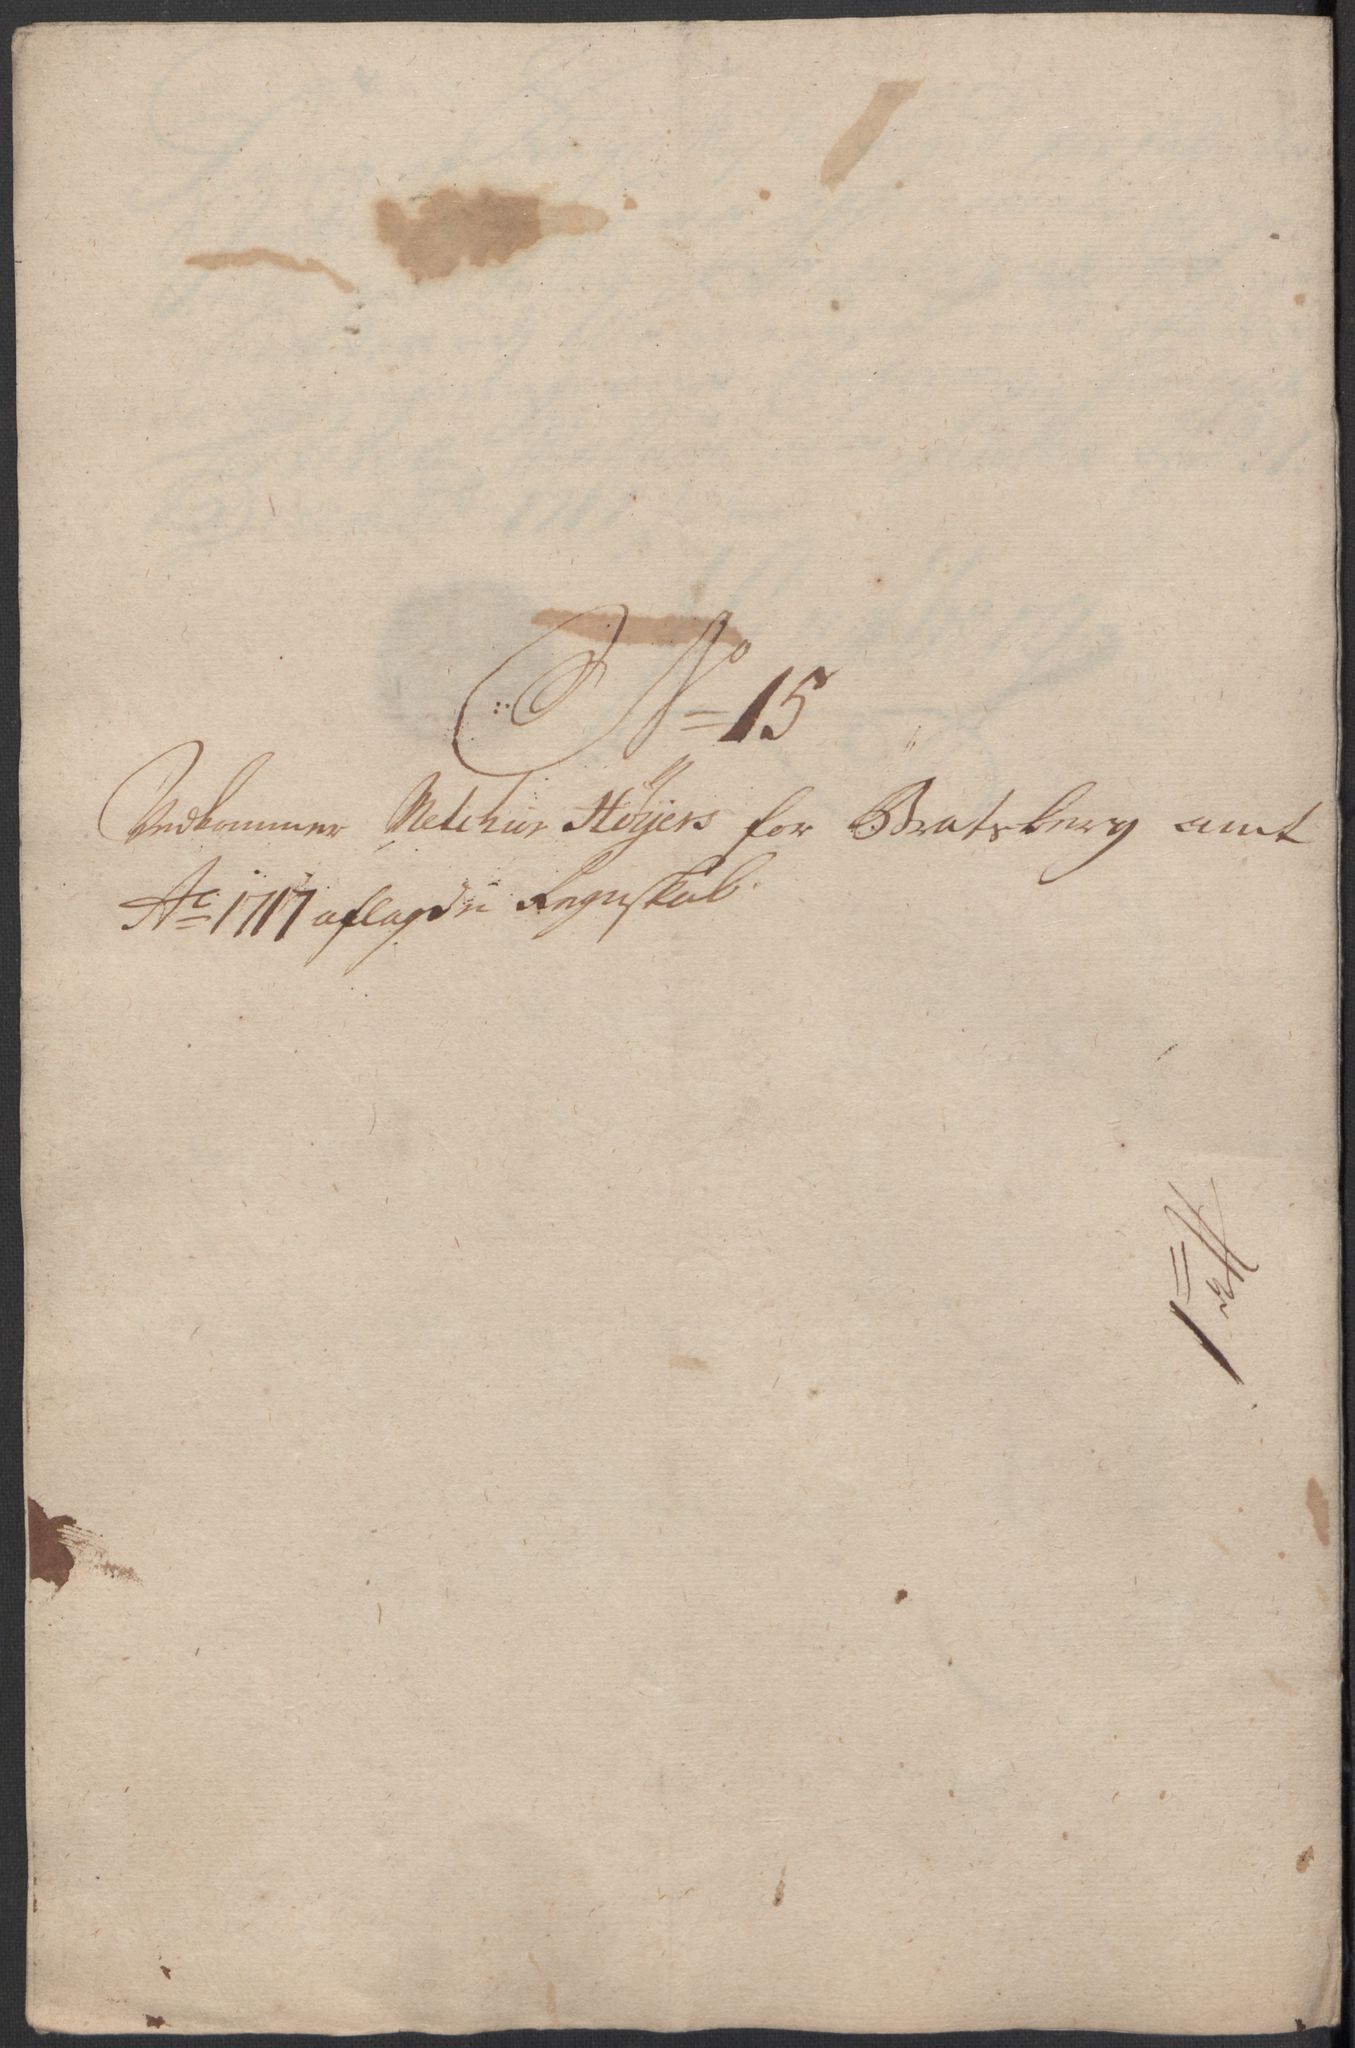 No 15
Vedkommer Melchior Höÿers for Bratsberg amt
Ao 1717 aflagde Regnskab.